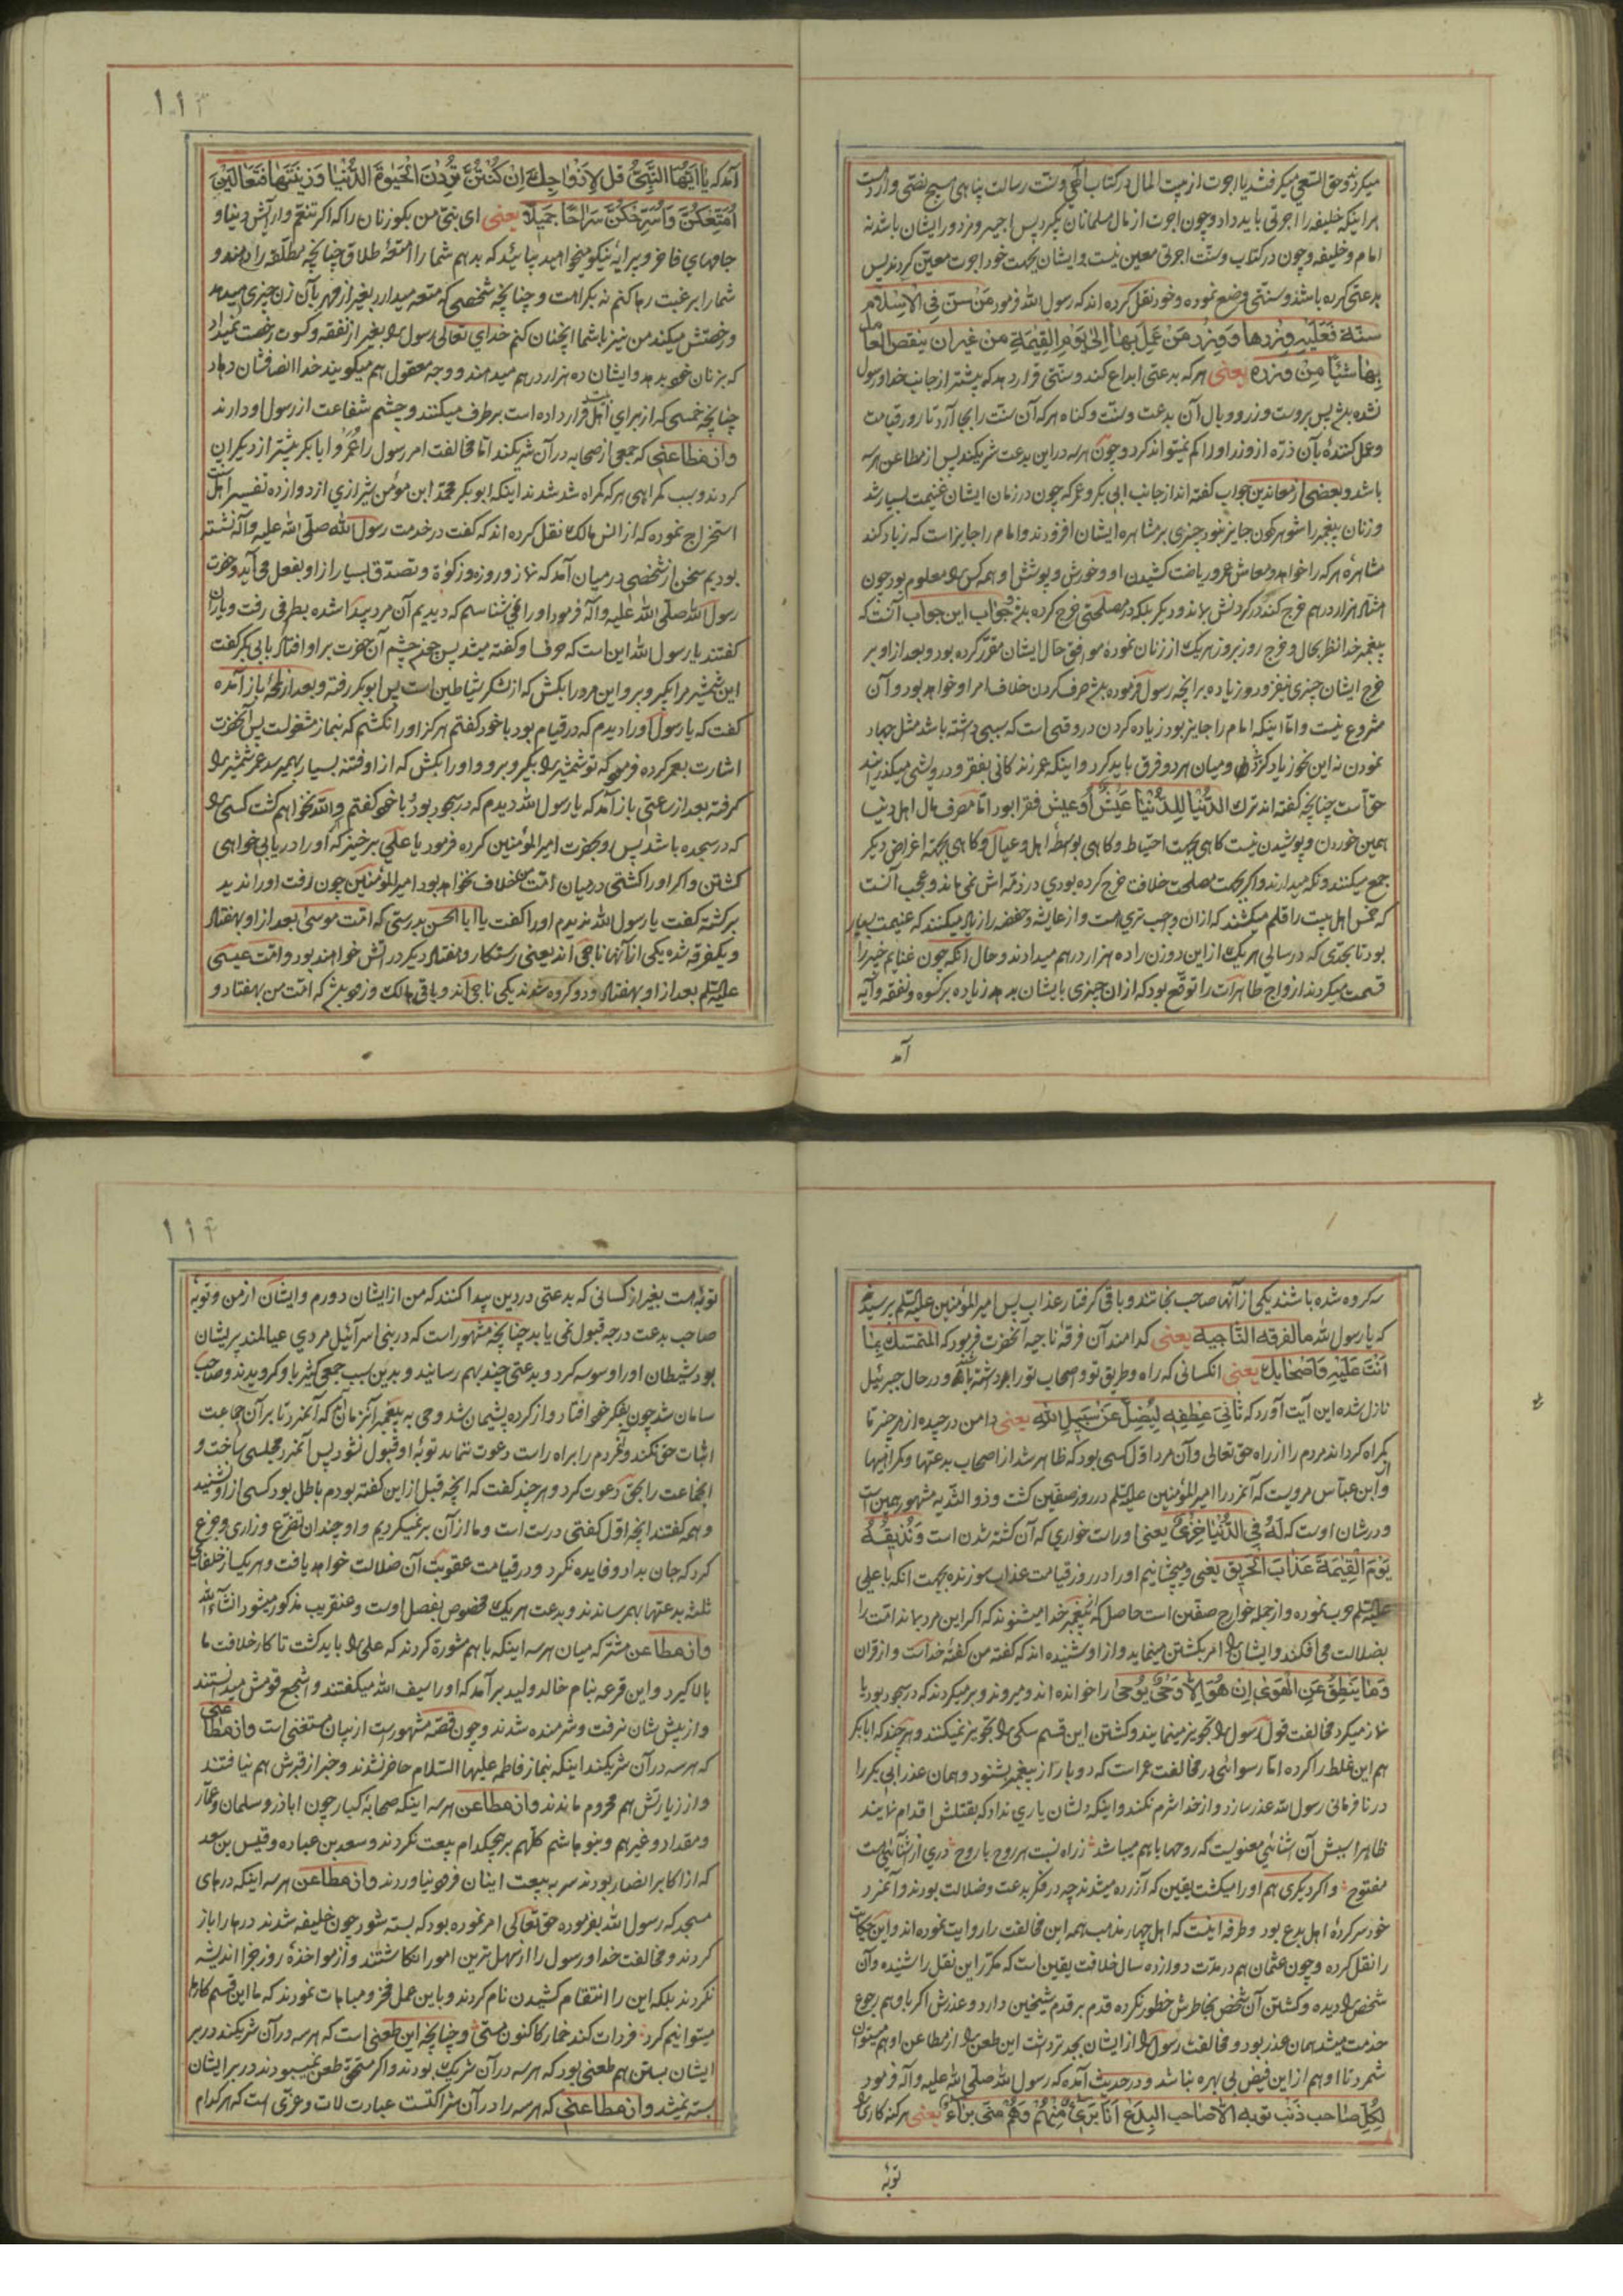 میکردند و حق السعی میگرفتند یا اجرت از بیت المال در کتاب الهی و سنت رسالت پناهی هیچ نصی وارد است
برای اینکه خلیفه را اجرتی باید داد و چون اجرت از مال مسلمانان بگیرد پس اجیر و مزدور ایشان باشد نه
امام و خلیفه و چون در کتاب و سنت اجرتی معین نیست و ایشان بجهت خود اجرت معین کردند پس
بدعتی کرده باشند و سنتی وضع نموده و خود نقل کرده اند که رسول الله فرمود مَنْ سنّ فِی الْاِسْلام
سنّة فَعَلَیْهِ وِزْرها وَ وِزْرُ مَنْ عَمِلَ بِهٰا اِلیٰ یَوْمِ الْقِیٰمَةِ مِنْ غیرِ ان ینقص العامل
بِهٰا شَیْئًا مِنْ وِزره یعنی هر که بدعتی ابداع کند و سنّتی قرار دهد که پیشتر از جانب خدا و رسول
نشده باشد پس بروست وزر و وبال آن بدعت و سنت و گناه هر که آن سنت را بجا آرد تا روز قیامت
و عمل کنندهٔ بآن ذرّه از وزر او را کم نمیتواند کرد و چون هر سه در این بدعت شریکند پس از مطاعن هر سه
باشد و بعضی از معاندین جواب گفته اند از جانب ابی بکر و عمر که چون در زمان ایشان غنیمت بسیار شد
و زنان پیغمبر را شوهر کردن جایز نبود چیزی بر مشاهره ایشان افزودند و امام را جایز است که زیاد کند
مشاهره هر که را خواهد و معاش عمر و ریاضت کشیدن او و خورش و پوشش او همه کس را معلوم بود چون
هشتاد هزار درهم خرج کند در گردنش بماند و دیگر بلکه در مصلحتی خرج کرده باشد و جواب این جواب آنست که
پیغمبر خدا نظر بحال و خرج روز بروز هر یک از زنان نموده موافق حال ایشان مقرر کرده بود و بعد از او بر
خرج ایشان چیزی نیفزود و زیاده بر آنچه رسول فرموده باشد صرف کردن خلاف امر او خواهد بود و آن
مشروع نیست و امّا اینکه امام را جایز بود زیاده کردن در وقتی است که سببی داشته باشد مثل جهاد
نمودن نه این نحو زیاد کردن و میان هر دو فرق باید کرد و اینکه عمر زندگانی بفقر و درویشی میگذرانید
حق است چنانچه گفته اند ترك الدُّنْیٰا لِلدُّنْیٰا عَیْش او عیش فقرا بود امّا مصرف مال اهل دنیا
همین خوردن و پوشیدن نیست گاهی بجهت احتیاط و گاهی بواسطه اهل و عیال و گاهی بجهت اغراض دیگر
جمع میکنند و نگه میدارند و اگر بجهت مصلحت خلافت خرج کرده بودی در ذمّه اش نمی ماند و عجب آنست
که خمس اهل بیت را قلم میکشند که از آن واجب تری هست و از عایشه و حفصه را زیاد میکنند که غنیمت بسیار
بود تا بحدّی که در سالی هر یک از این دو زن را ده هزار درهم میدادند و حال آنکه چون غنایم خیبر را
قسمت میکردند ازواج طاهرات را توقع بود که از آن چیزی بایشان بدهد زیاده بر کسوه و نفقه و آیه
آمد
١١٣
آمد که یٰا اَیُّهَا النَّبِیُّ قُلْ لِاَزْوٰاجِكَ اِنْ كُنْتُنَّ تُرِدْنَ الْحَیٰوةَ الدُّنْیٰا وَ زِینَتَهٰا فَتَعٰالَیْنَ
اُمَتِّعْكُنَّ وَ اُسَرِّحْكُنَّ سَرٰاحًا جَمِیلًا یعنی ای نبیّ من بگو زنان را که اگر تنعّم و آرایش دنیا و
جامهای فاخر و پیرایه نیکو میخواهید بیائید که بدهم شما را متعهٔ طلاق چنانچه مطلّقه را دهند و
شما را برغبت رها کنم نه بکراهت و چنانچه شخصی که متعه میدارد بغیر از مهر بآن زن چیزی میدهد
و رخصتش میکند من نیز با شما آنچنان کنم خدای تعالی رسول را بغیر از نفقه و کسوت رخصت نمیداد
که بزنان خود بدهد و ایشان ده هزار درهم میدهند و وجه معقول هم میگویند خدا انصافشان دهاد
چنانچه خمسی که از برای اهل بیت قرار داده است برطرف میکنند و چشم شفاعت از رسول او دارند
و از مطاعنی که جمعی از صحابه در آن شریکند امّا مخالفت امر رسول را عمر و ابا بکر بیشتر از دیگران
کردند و سبب گمراهی هر که گمراه شد شدند اینکه ابو بکر محمّد ابن مؤمن شیرازی از دوازده تفسیر اهل سنت
استخراج نموده که از انس مالک نقل کرده اند که گفت در خدمت رسول الله صلّی الله علیه و آله نشسته
بودیم سخن از شخصی در میان آمد که نماز و روزه و زکوٰة و تصدّق بسیار از او بفعل می آید و حضرت
رسول الله صلّی الله علیه و آله فرمود او را نمی شناسم که دیدیم آن مرد پیدا شده بطرفی رفت و یاران
گفتند یا رسول الله این است که حرف او گفته میشد پس چون چشم آن حضرت بر او افتاد بابی بکر گفت
این شمشیر مرا بگیر و برو این مرد را بکش که از لشکر شیاطین است پس ابو بکر رفته و بعد از لحظهٔ باز آمده
گفت که یا رسول او را دیدم که در قیام بود با خود گفتم هرگز او را نکشم که بنماز مشغولست پس آنحضرت
اشارت بعمر کرده فرمود که تو شمشیر را بگیر و برو و او را بکش که از او فتنه بسیار بهم میرسد عمر شمشیر را
گرفته بعد از ساعتی باز آمد که یا رسول الله دیدم که در سجود بود با خود گفتم والله نخواهم کشت کسی را
که در سجده باشد پس رو بحضرت امیر المؤمنین کرده فرمود یا علی برخیز که او را در یابی خواهی
کشتن و اگر او را کشتی در میان امّت من خلاف نخواهد بود امیر المؤمنین چون رفت او را ندید
برگشته گفت یا رسول الله ندیدم او را گفت یا ابا الحسن بدرستی که امّت موسیٰ بعد از او بهفتاد
و یکفرقه شده یکی از آنها ناجی اند یعنی رستگار و هفتاد دیگر در آتش خواهند بود و امّت عیسی
علیه السلم بعد از او بهفتاد و دو گروه شدند یکی ناجی اند و باقی هالک و زود باشد که امّت من بهفتاد و
سه گروه شده باشند یکی از آنها صاحب نجاتند و باقی گرفتار عذاب پس امیر المؤمنین علیه السلم پرسید
که یا رسول الله ما الفرقة النّاجیة یعنی کدامند آن فرقه ناجیه آنحضرت فرمود که المتمسّك بما
اَنْتَ عَلَیْهِ وَ اَصْحٰابك یعنی آنکسانی که راه و طریق تو و اصحاب تو را داشته باشند و در حال جبرئیل
نازل شده این آیت آورد که ثٰانِیَ عِطْفِهِ لِیُضِلَّ عَنْ سَبِیلِ اللّٰهِ یعنی دامن در چیده از هر چیز تا
گمراه گرداند مردم را از راه حق تعالی و آن مرد اوّل کسی بود که ظاهر شد از اصحاب بدعتها و گمراهیها
و از ابن عبّاس مرویست که آنمرد را امیر المؤمنین علیه السلم در روز صفّین کشت و ذو الثدیه مشهور همین است
و در شان اوست که لَهُ فِی الدُّنْیٰا خِزْیٌ یعنی او راست خواری که آن کشته شدن است وَ نُذِیقُهُ
یَوْمَ الْقِیٰمَةِ عَذٰابَ الْحَرِیقِ یعنی و میچشانیم او را در روز قیامت عذاب سوزنده بجهت آنکه با علی
علیه السلم حرب نموده و از جمله خوارج صفّین است حاصل که از پیغمبر خدا میشنوند که اگر این مرد بماند امّت را
بضلالت می افکند و ایشان را امر بکشتن مینماید و از او شنیده اند که گفته من گفتهٔ خداست و از قرآن
وَ مٰا یَنْطِقُ عَنِ الْهَویٰ اِنْ هُوَ اِلّٰا وَحْیٌ یُوحیٰ را خوانده اند و میروند و بر میگردند که در سجود بود یا
نماز میکرد مخالفت قول رسول را تجویز مینمایند و کشتن این قسم سگی را تجویز نمیکنند و هر چند که ابا بکر
هم این غلط را کرده امّا رسوائی در مخالفت عمر است که دو بار از پیغمبر بشنود و همان عذر ابی بکر را
در نافرمانی رسول الله عذر سازد و از خدا شرم نکند و اینکه دلشان یاری نداد که بقتلش اقدام نمایند
ظاهرا سببش آن آشنائی معنویست که روحها با هم میباشد زراه نسبت هر روح با روح دری از آشنائی هست
مفتوح و اگر دیگری هم او را میکشت یقین که آزرده میشدند چه در فکر بدعت و ضلالت بودند و آنمرد
خود سر کردهٔ اهل بدع بود و طرفه اینست که اهل چهار مذهب همه این مخالفت را روایت نموده اند و این حکایت
را نقل کرده و چون عثمان هم در مدّت دوازده سال خلافت یقین است که مکرّر این نقل را شنیده و آن
شخص را دیده و کشتن آن شخص بخاطرش خطور نکرده قدم بر قدم شیخین دارد و عذرش اگر با او هم رجوع
خدمت میشد همان عذر بود و مخالفت رسول را از ایشان بجدتر داشت این طعن را از مطاعن او هم میتوان
شمرد تا او هم از این فیض بی بهره نباشد و در حدیث آمده که رسول الله صلّی الله علیه و آله فرمود
لِكُلِّ صٰاحب ذَنْب توبة اِلّٰا صٰاحب البِدَع اَنَا بَرِیٌٔ مِنْهُمْ وَ هُمْ مِنّی بُرَآءُ یعنی هر گنه کاری را
توبهٔ
١١٤
توبهٔ هست بغیر از کسانی که بدعتی در دین پیدا کنند که من از ایشان دورم و ایشان از من و توبهٔ
صاحب بدعت درجه قبول نمی یابد چنانچه مشهور است که در بنی اسرآئیل مردی عیالمند پریشان
بود شیطان او را وسوسه کرد و بدعتی چند بهم رسانید و بدین سبب جمعی کثیر باو گرویدند و صاحب
سامان شد چون بفکر خود افتاد و از کرده پشیمان شد وحی به پیغمبر آنزمان آمد که آنمرد تا بر آن جماعت
اثبات حق نکند و مردم را براه راست دعوت ننماید توبهٔ او قبول نشود پس آنمرد مجلسی ساخت و
آنجماعت را بحق دعوت کرد و هر چند گفت که آنچه قبل از این گفته بودم باطل بود کسی از او نشنید
و همه گفتند آنچه اوّل گفتی درست است و ما از آن بر نمیگردیم و او چندان تضرّع و زاری و جزع
کرد که جان بداد و فایده نکرد و در قیامت عقوبت آن ضلالت خواهد یافت و هر یک از خلفای
ثلثه بدعتها بهم رساندند و بدعت هر یک مخصوص بفصل اوست و عنقریب مذکور میشود انشاء الله
و از مطاعن مشترکه میان هر سه اینکه با هم مشورة کردند که علی را باید کشت تا کار خلافت ما
بالا گیرد و این قرعه بنام خالد ولید بر آمد که او را سیف الله میگفتند و اشجع قومش میدانستند
و از پیش شان نرفت و شرمنده شدند و چون قصّه مشهور است از بیان مستغنی است و از مطاعنی
که هر سه در آن شریکند اینکه بنماز فاطمه علیها السّلام حاضر نشدند و خبر از قبرش هم نیافتند
و از زیارتش هم محروم ماندند و از مطاعن هر سه اینکه صحابهٔ کبار چون اباذر و سلمان و عمّار
و مقداد و غیرهم و بنو هاشم کلّهم بر هیچکدام بیعت نکردند و سعد بن عباده و قیس بن سعد
که از اکابر انصار بودند سر به بیعت اینان فرو نیاوردند و از مطاعن هر سه اینکه درهای
مسجد که رسول الله بفرموده حق تعالی امر نموده بود که بسته شود چون خلیفه شدند درها را باز
کردند و مخالفت خدا و رسول را از سهل ترین امور انگاشتند و از مواخذهٔ روز جزا اندیشه
نکردند بلکه این را انتقام کشیدن نام کردند و باین عمل فخر و مباهات نمودند که ما این قسم کارها
میتوانیم کرد فردات کند خمار کاکنون مستی و چنانچه این طعنی است که هر سه در آن شریکند در بر
ایشان بستن هم طعنی بود که هر سه در آن شریک بودند و اگر مستحق طعن نمیبودند در بر ایشان
بسته نمیشد و از مطاعنی که هر سه را در آن شراکتست عبادت لات و عزّی است که هر کدام